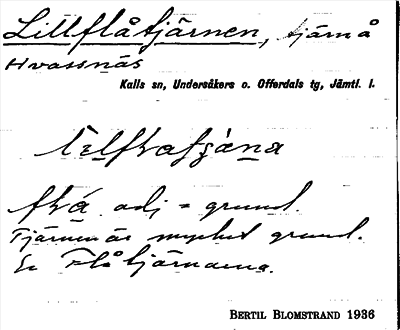 Lillflåtjärnen, tjärn å
Hvassnäs
Kalls sn, Undersåkers o. Offerdals tg, Jämtl. l.
flå adj = grund.
Tjärnen är mycket grund.
Se Flåtjärnarna.
BERTIL BLOMSTRAND 1936